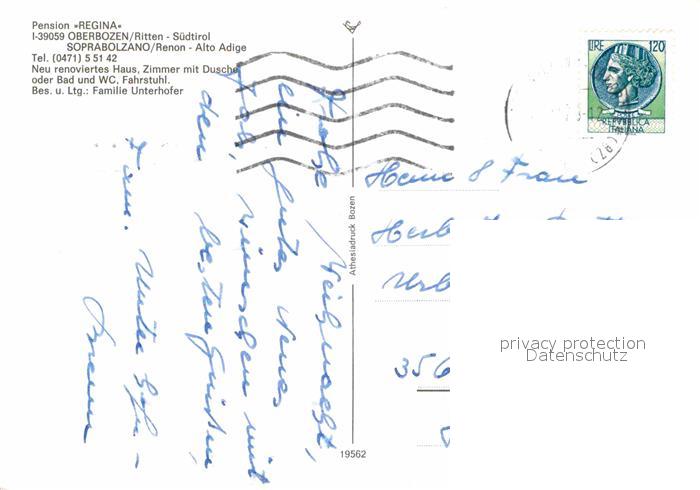 Pension «REGINA»
I-39059 OBERBOZEN/Ritten - Südtirol
SOPRABOLZANO/Renon - Alto Adige
Tel. (0471) 5 51 42
Neu renoviertes Haus, Zimmer mit Dusche
oder Bad und WC, Fahrstuhl.
Bes. u. Ltg.: Familie Unterhofer
Frohe Weihnacht,
ein gutes Neues
Jahr, wünschen mit
den besten Grüßen,
Fam. Unterhofer-
LIRE 120
REPVBBLICA
ITALIANA
(26)
Athesiadruck Bozen
19562
Herrn & Frau
Herb
Urb
356
privacy protection
Datenschutz